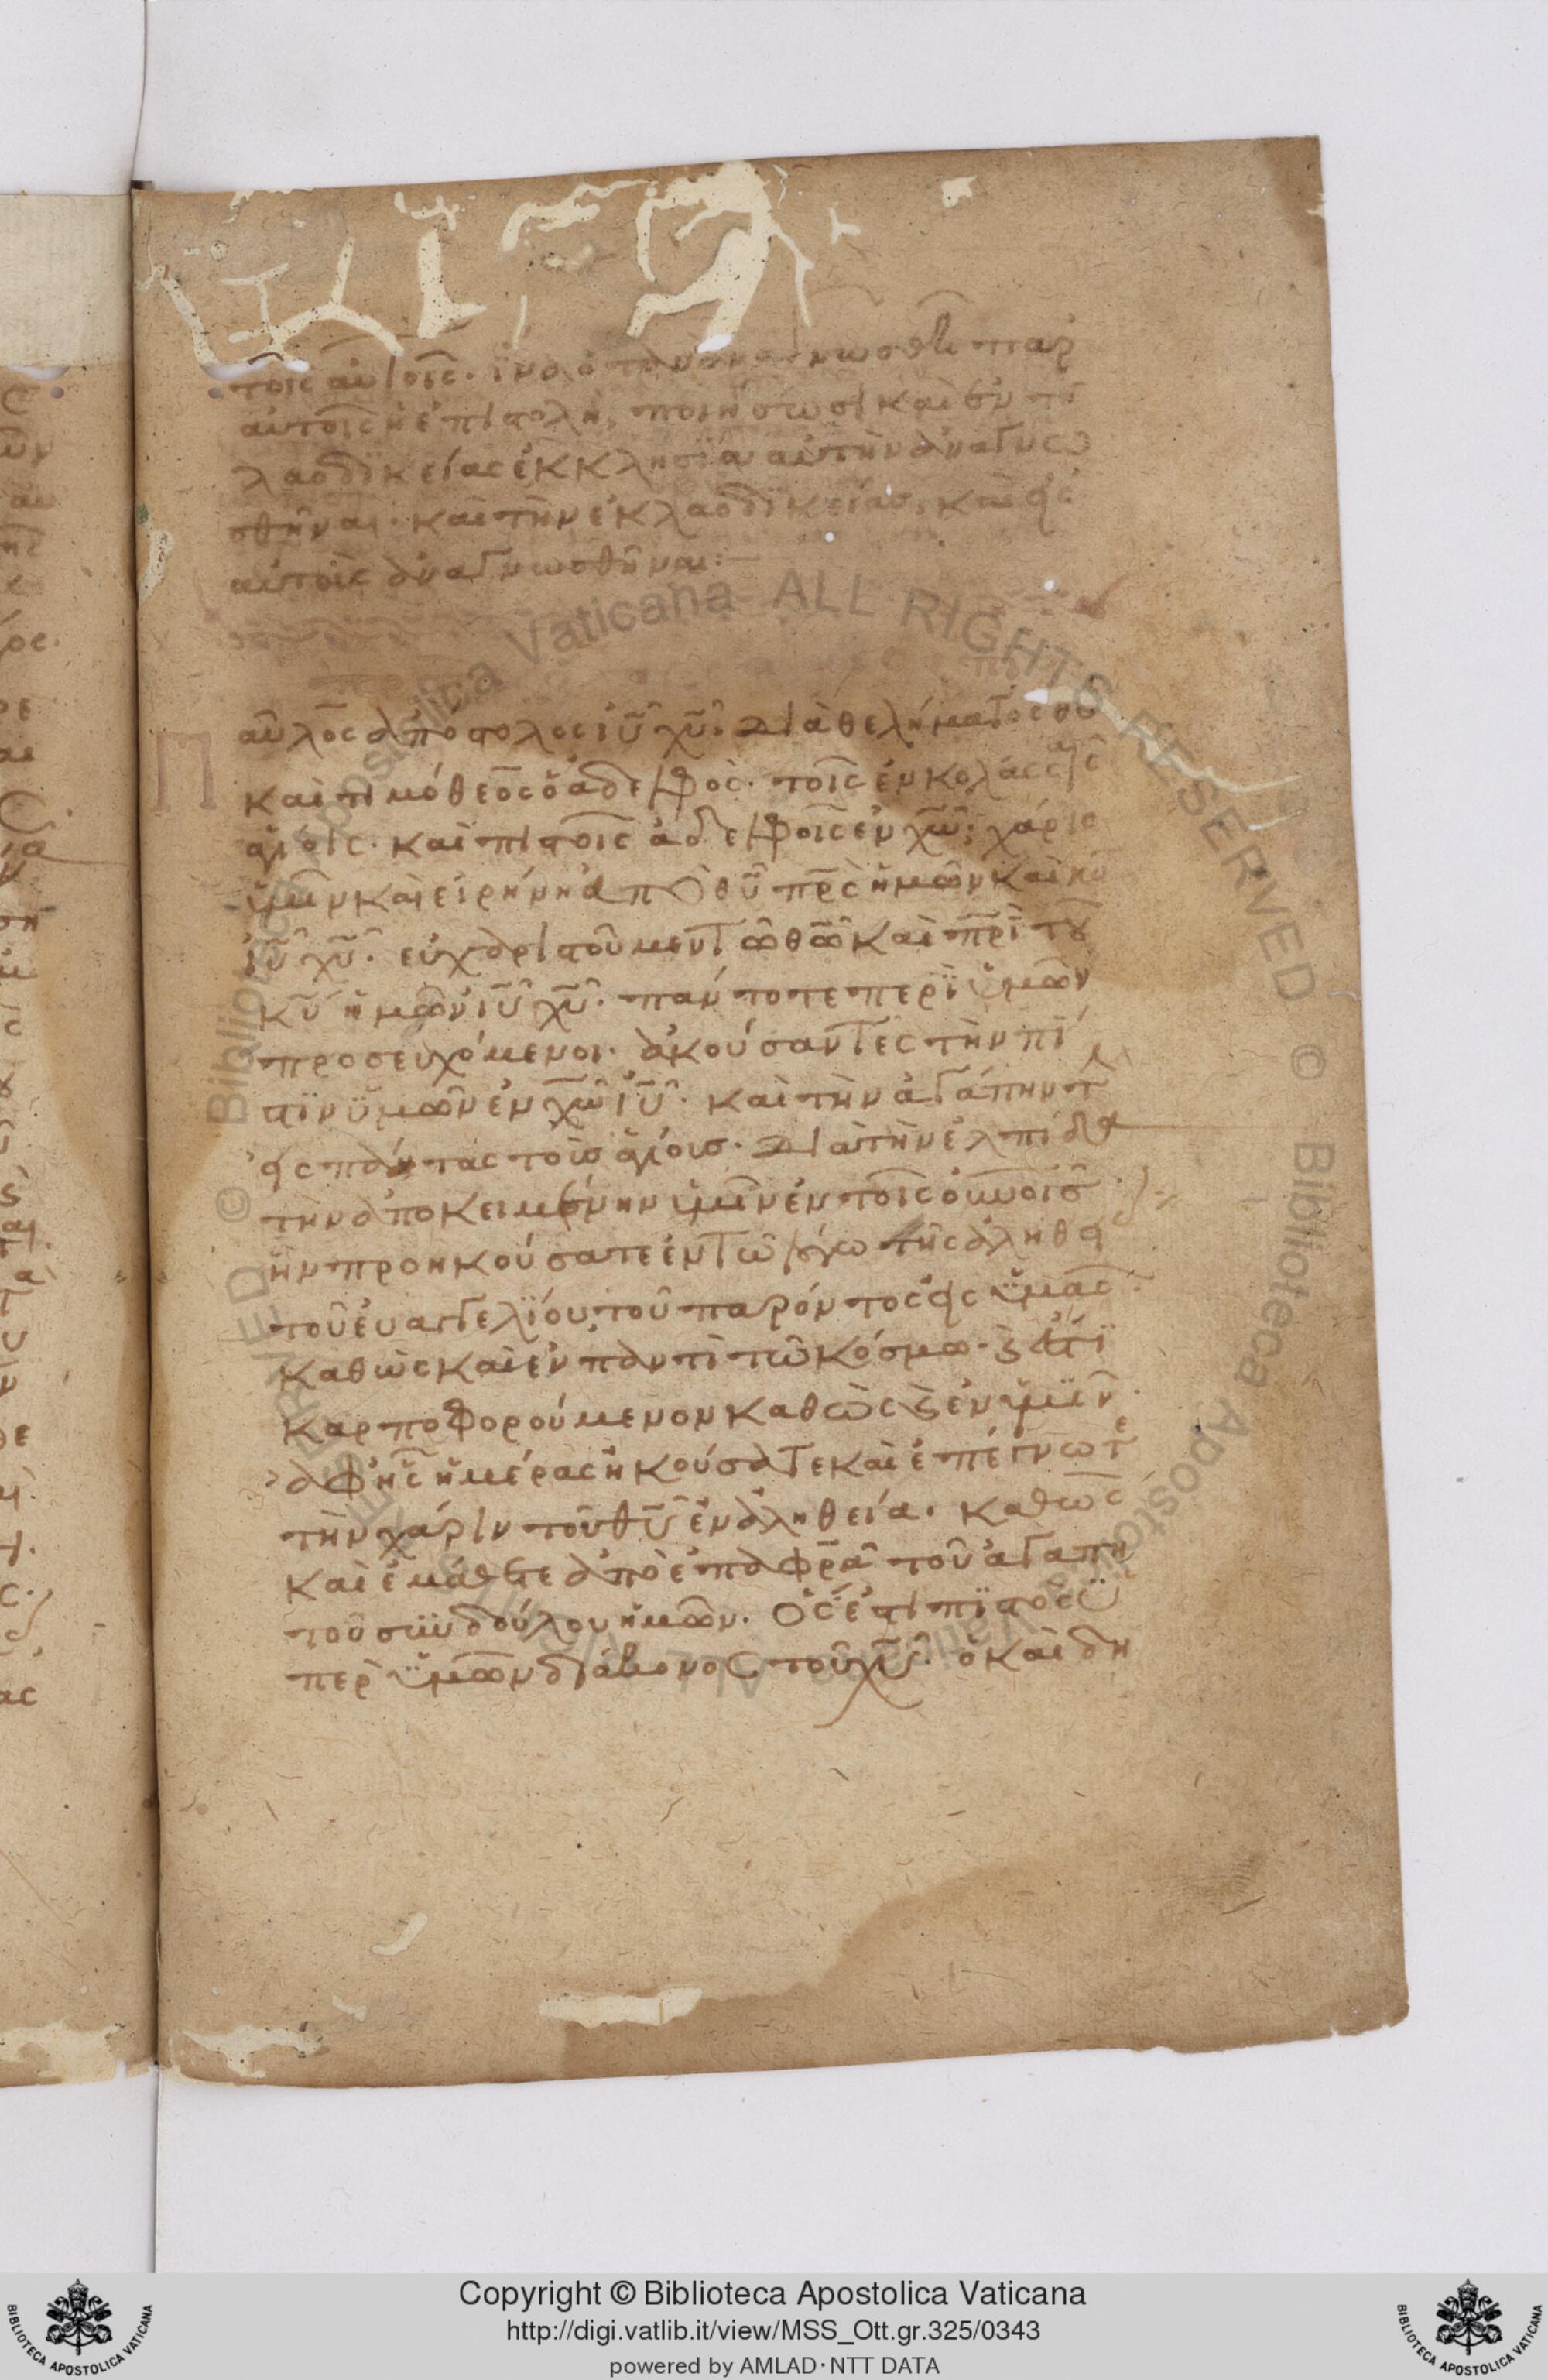 τοῖς αὐτοῖς. ἵνα ὅταν ἀναγνωσθῆ παρ
αὐτοῖς ἡ ἐπιστολὴ, ποιήσωσι καὶ ἐν τῆ
λαοδικείας ἐκκλησία αὐτὴν ἀναγνω
σθῆναι. καὶ τὴν ἐκ λαοδικείας, καὶ
αὐτοῖς ἀναγνωσθῆναι:
Π
αῦλος ἀπόστολος ἰῦ χῦ. διὰ θελήματος θῦ
καὶ τιμόθεος ὁ ἀδελφὸς. τοῖς ἐν κολασσαῖς
ἁγίοις. καὶ πιστοῖς ἀδελφοῖς ἐν χῶ: χάρις
ὑμῖν καὶ εἰρήνη ἀπὸ θῦ πρς ἡμῶν καὶ κῦ
ἰῦ χῦ. εὐχαριστοῦμεν τῶ θῶ καὶ πρὶ τοῦ
κῦ ἡμῶν ἰῦ χῦ. πάντοτε περὶ ὑμῶν
προσευχόμενοι. ἀκούσαντες τὴν πί
στϊν ὑμῶν ἐν χῶ ἰῦ. καὶ τὴν ἀγάπην τὴν
εἰς πάντας τοῖς ἁγίοις. διὰ τὴν ἐλπίδα
τὴν ἀποκειμένην ὑμῖν ἐν τοῖς οὐνοῖς
ἣν προηκούσατε ἐν τῶ λόγω τῆς ἀληθεί
τοῦ ἐυαγγελϊου, τοῦ παρόντος εἰς ὑμᾶς.
καθὼς καὶ ἐν παντὶ τῶ κόσμω. καὶ ἔστϊ
καρποφορούμενον καθὼς καὶ ἐν ὑμῖν.
ἀφ ἧς ἡμέρας ἠκούσατε καὶ ἐπέγνωτε
τὴν χάριν τοῦ θῦ ἐν ἀληθεία. καθὼς
καὶ ἐμάθετε ἀπὸ ἐπαφρᾶ τοῦ ἀγαπη
τοῦ συνδούλου ἡμῶν. ὅς ἐστι πϊστὸς ὑ
περ ὑμῶν διάκονος τοῦ χῦ. ὁ καὶ δη
Copyright © Biblioteca Apostolica Vaticana
http://digi.vatlib.it/view/MSS_Ott.gr.325/0343
powered by AMLAD·NTT DATA
BIBLIOTECA APOSTOLICA VATICANA
BIBLIOTECA APOSTOLICA VATICANA
© Biblioteca Apostolica Vaticana ALL RIGHTS RESERVED © Biblioteca Apostolica Vaticana ALL RIGHTS RESERVED